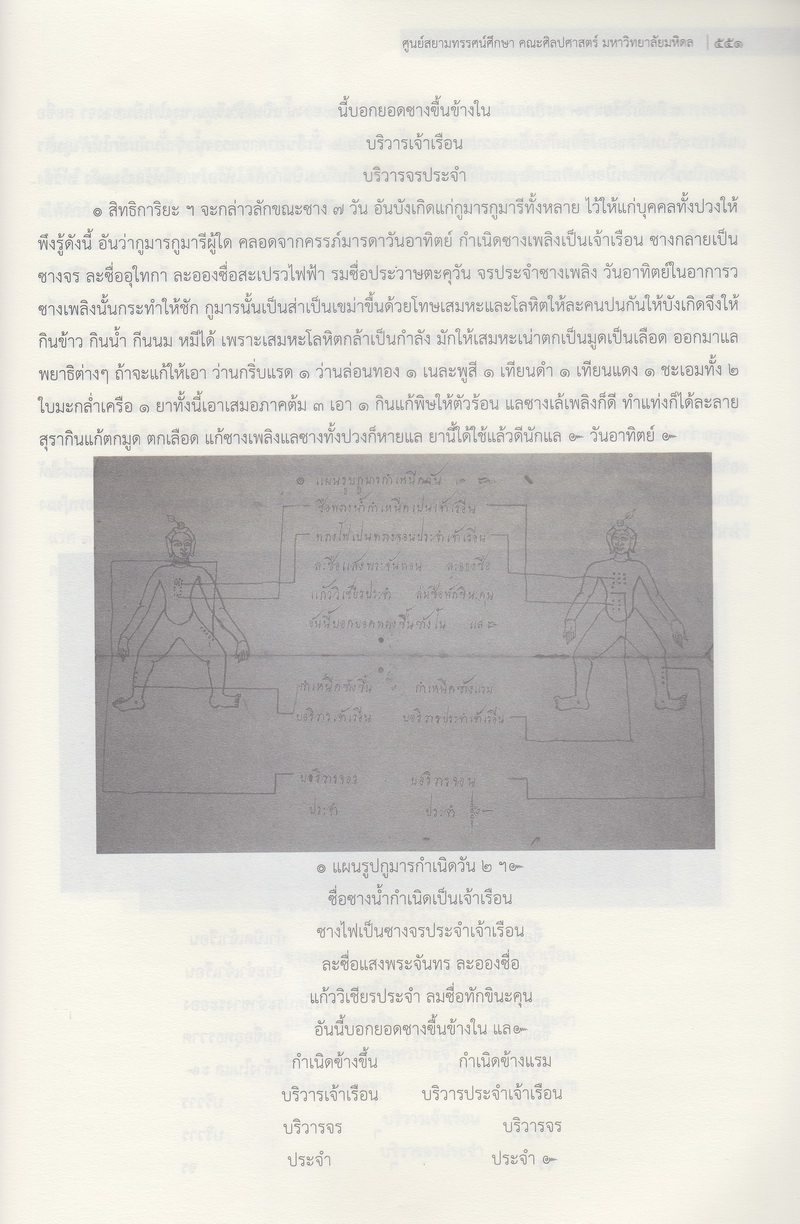 ศูนย์สยามทรรศน์ศึกษา คณะศิลปศาสตร์ มหาวิทยาลัยมหิดล | ๕๕๑
นี้บอกยอดซางขึ้นข้างใน
บริวารเจ้าเรือน
บริวารจรประจำ
๏ สิทธิการิยะ ฯ จะกล่าวลักขณะซาง ๗ วัน อันบังเกิดแก่กุมารกุมารีทั้งหลาย ไว้ให้แก่บุคคลทั้งปวงให้
พึงรู้ดังนี้ อันว่ากูมารกูมารีผู้ใด คลอดจากครรภ์มารดาวันอาทิตย์ กำเนิดซางเพลิงเป็นเจ้าเรือน ซางกลายเป็น
ซางจร ละชื่ออุไทกา ละอองชื่อสะเปรวไฟฟ้า รมชื่อประวาษตะคุวัน จรประจำซางเพลิง วันอาทิตย์ในอาการว
ซางเพลิงนั้นกระทำให้ชัก กูมารนั้นเป็นส่าเป็นเขม่าขึ้นด้วยโทษเสมหะและโลหิตให้ละคนปนกันให้บังเกิดจึงให้
กินข้าว กินน้ำ กีนนม หมีได้ เพราะเสมหะโลหิตกล้าเป็นกำลัง มักให้เสมหะเน่าตกเป็นมูดเป็นเลือด ออกมาแล
พยาธิต่างๆ ถ้าจะแก้ให้เอา ว่านกริ่บแรด ๑ ว่านล่อนทอง ๑ เนละพูสี ๑ เทียนดำ ๑ เทียนแดง ๑ ชะเอมทั้ง ๒
ใบมะกล่ำเครือ ๑ ยาทั้งนี้เอาเสมอภาคต้ม ๓ เอา ๑ กินแก้พิษให้ตัวร้อน แลซางเล้เพลิงก็ดี ทำแท่งก็ได้ละลาย
สุรากินแก้ตกมูด ตกเลือด แก้ซางเพลิงแลซางทั้งปวงก็หายแล ยานี้ได้ใช้แล้วดีนักแล ๛ วันอาทิตย์ ๛
๏ แผนรูปกูมารกำเนิดวัน ๒ ฯ๛
ชื่อซางน้ำกำเนิดเป็นเจ้าเรือน
ซางไฟเป็นซางจรประจำเจ้าเรือน
ละชื่อแสงพระจันทร ละอองชื่อ
แก้ววิเชียรประจำ ลมชื่อทักขินะคุน
อันนี้บอกยอดซางขึ้นข้างใน แล๛
กำเนิดข้างขึ้น กำเนิดข้างแรม
บริวารเจ้าเรือน บริวารประจำเจ้าเรือน
บริวารจร บริวารจร
ประจำ ประจำ ๛